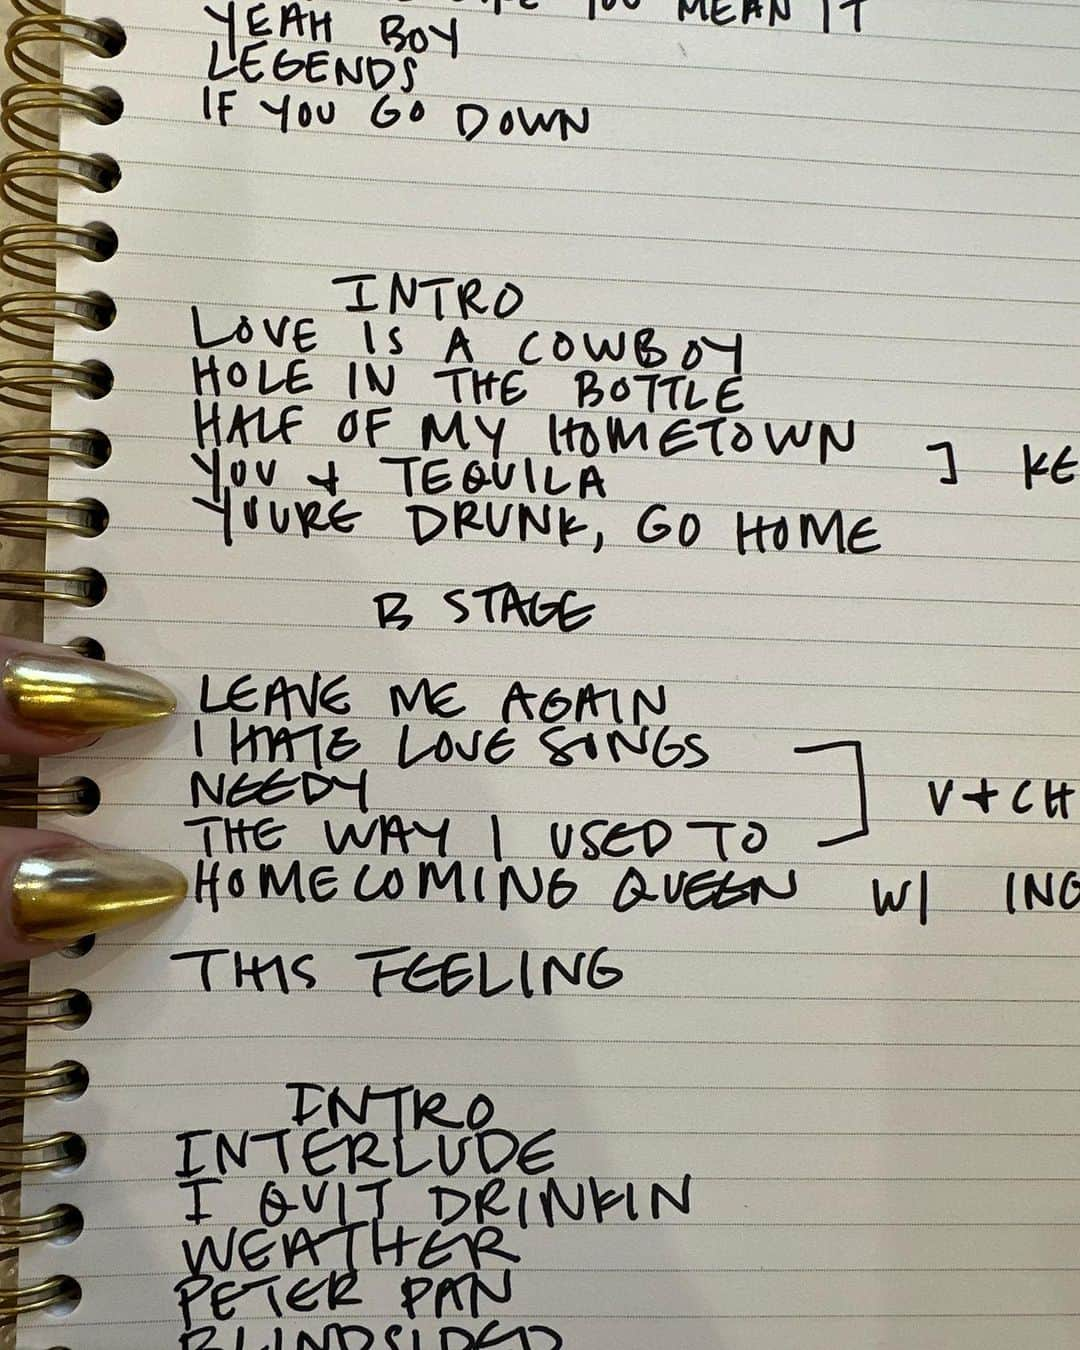 YOU MEAN IT
YEAH BOY
LEGENDS
IF YOU GO DOWN
INTRO
LOVE IS A COWBOY
HOLE IN THE BOTTLE
HALF OF MY HOMETOWN ] KE
YOU + TEQUILA
YOURE DRUNK, GO HOME
B STAGE
LEAVE ME AGAIN
I HATE LOVE SONGS
NEEDY ] V + CH
THE WAY I USED TO
HOMECOMING QUEEN W/ ING
THIS FEELING
INTRO
INTERLUDE
I QUIT DRINKIN
WEATHER
PETER PAN
BLINDSIDED